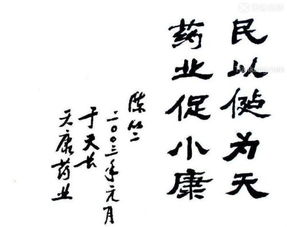 民以健为天
药业促小康
陈竺
二〇〇三年元月
于天长
天康药业